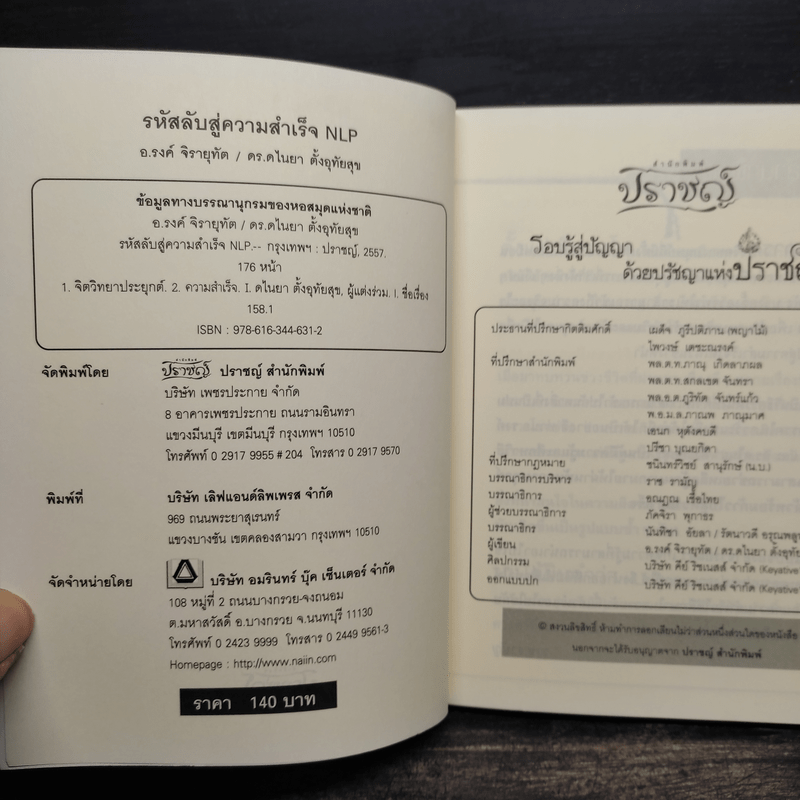 รหัสลับสู่ความสำเร็จ NLP
อ.รงค์ จิรายุทัต / ดร.ดไนยา ตั้งอุทัยสุข
ข้อมูลทางบรรณานุกรมของหอสมุดแห่งชาติ
อ.รงค์ จิรายุทัต / ดร.ดไนยา ตั้งอุทัยสุข
รหัสลับสู่ความสำเร็จ NLP.-- กรุงเทพฯ : ปราชญ์, 2557.
176 หน้า
1. จิตวิทยาประยุกต์. 2. ความสำเร็จ. I. ดไนยา ตั้งอุทัยสุข, ผู้แต่งร่วม. I. ชื่อเรื่อง
158.1
ISBN : 978-616-344-631-2
จัดพิมพ์โดย
สำนักพิมพ์
ปราชญ์ ปราชญ์ สำนักพิมพ์
บริษัท เพชรประกาย จำกัด
8 อาคารเพชรประกาย ถนนรามอินทรา
แขวงมีนบุรี เขตมีนบุรี กรุงเทพฯ 10510
โทรศัพท์ 0 2917 9955 # 204 โทรสาร 0 2917 9570
พิมพ์ที่ บริษัท เลิฟแอนด์ลิพเพรส จำกัด
969 ถนนพระยาสุเรนทร์
แขวงบางชัน เขตคลองสามวา กรุงเทพฯ 10510
จัดจำหน่ายโดย บริษัท อมรินทร์ บุ๊ค เซ็นเตอร์ จำกัด
108 หมู่ที่ 2 ถนนบางกรวย-จงถนอม
ต.มหาสวัสดิ์ อ.บางกรวย จ.นนทบุรี 11130
โทรศัพท์ 0 2423 9999 โทรสาร 0 2449 9561-3
Homepage : http://www.naiin.com
ราคา 140 บาท
สำนักพิมพ์
ปราชญ์
รอบรู้สู่ปัญญา
ด้วยปรัชญาแห่งปราชญ์
ประธานที่ปรึกษากิตติมศักดิ์ เผด็จ ภูรีปติภาน (พญาไม้)
ไพวงษ์ เตชะณรงค์
ที่ปรึกษาสำนักพิมพ์ พล.ต.ท.ภาณุ เกิดลาภผล
พล.ต.ท.สกลเขต จันทรา
พล.อ.ต.ภูริทัต จันทร์แก้ว
พ.อ.ม.ล.ภาณพ ภาณุมาศ
เอนก หุตังคบดี
ปรีชา บุณยกิดา
ที่ปรึกษากฎหมาย ชนินทร์วิชย์ สานุรักษ์ (น.บ.)
บรรณาธิการบริหาร ราช รามัญ
บรรณาธิการ อณฏณ เชื้อไทย
ผู้ช่วยบรรณาธิการ ภัคจิรา พุกาธร
บรรณาธิกร นันทิชา อัยลา / รัตนาวดี
ผู้เขียน อ.รงค์ จิรายุทัต / ดร.ดไนยา
ศิลปกรรม บริษัท คีย์ ริชเนสส์ จำกัด (Keyative
ออกแบบปก บริษัท คีย์ ริชเนสส์ จำกัด (Keyative
© สงวนลิขสิทธิ์ ห้ามทำการลอกเลียนไม่ว่าส่วนหนึ่งส่วนใดของหนังสือ
นอกจากจะได้รับอนุญาตจาก ปราชญ์ สำนักพิมพ์